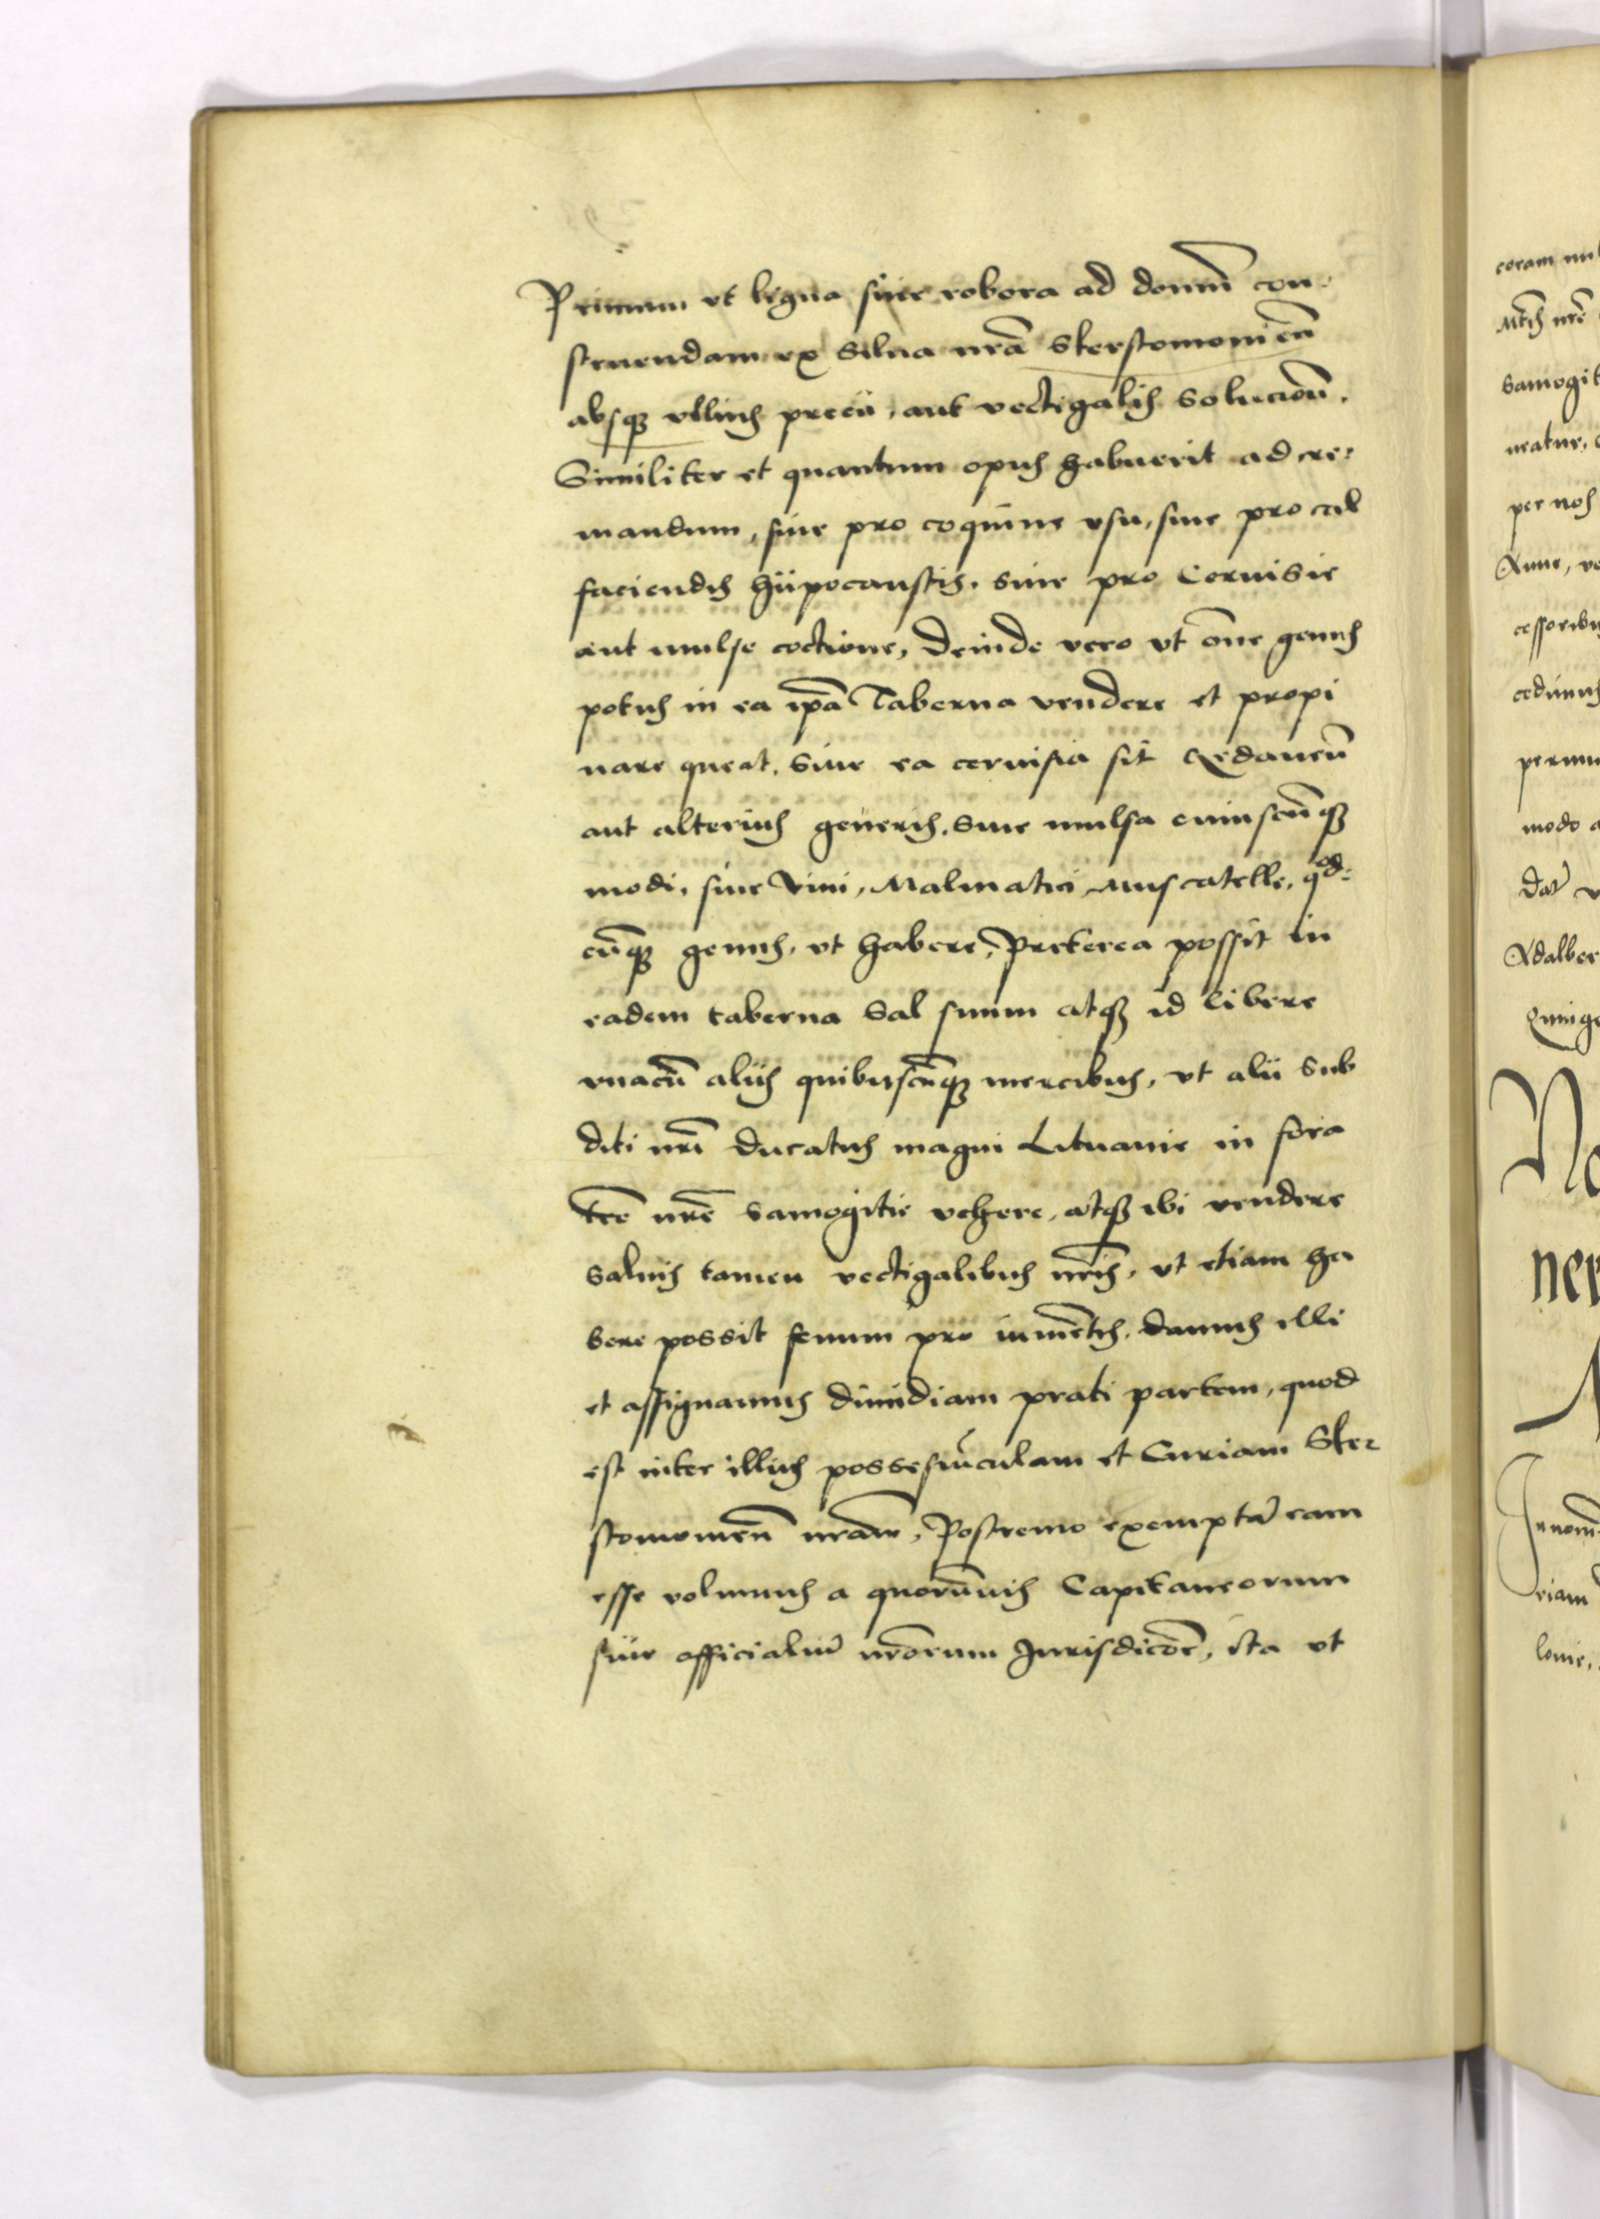 Primum vt ligna siue robora ad domũ con-
struendam ex Silua nrã Skerstomoniẽn
absq; vllius precii, aut vectigalis Solucioñ.
Similiter et quantum opus habuerit ad cre-
mandum, siue pro coquine vsu, siue pro cal
faciendis hÿpocaustis, siue pro Ceruisie
aut mulse coctione, Deinde vero vt om̃e genus
potus in ea ip̃a Taberna vendere et propi
nare queat, Siue ea ceruisia sit Gedaneñ
aut alterius generis, Siue mulsa cuiuscũq;
modi, siue Vini, Malmatici, Muscatelle, qd-
cũq; genus, vt habere, Preterea possit in
eadem taberna Sal suum atq; id libere
vnacũ aliis quibuscũq; mercibus, vt alii Sub
diti nr̃i Ducatus magni Lituanie in fora
trẽ nrẽ Samogitie vehere, atq; ibi vendere
Saluis tamen vectigalibus nr̃is, vt etiam ha
bere possit fenum pro iumẽtis, damus illi
et assignamus dimidiam prati partem, quod
est inter illius possesiũculam et Curiam Sker
stomoneñ nram̃, Postremo exemptã eam
esse volumus a quorũuis Capitaneorum
siue officialiũ nr̃orum Jurisdicõe, ita vt
coram
Mtis nrẽ
Samogit
neatur,
per nos
Anne,
cessoribus
cedimus
permu
modo a
Dat̃
Adalber
No
ner
riam
lonie,